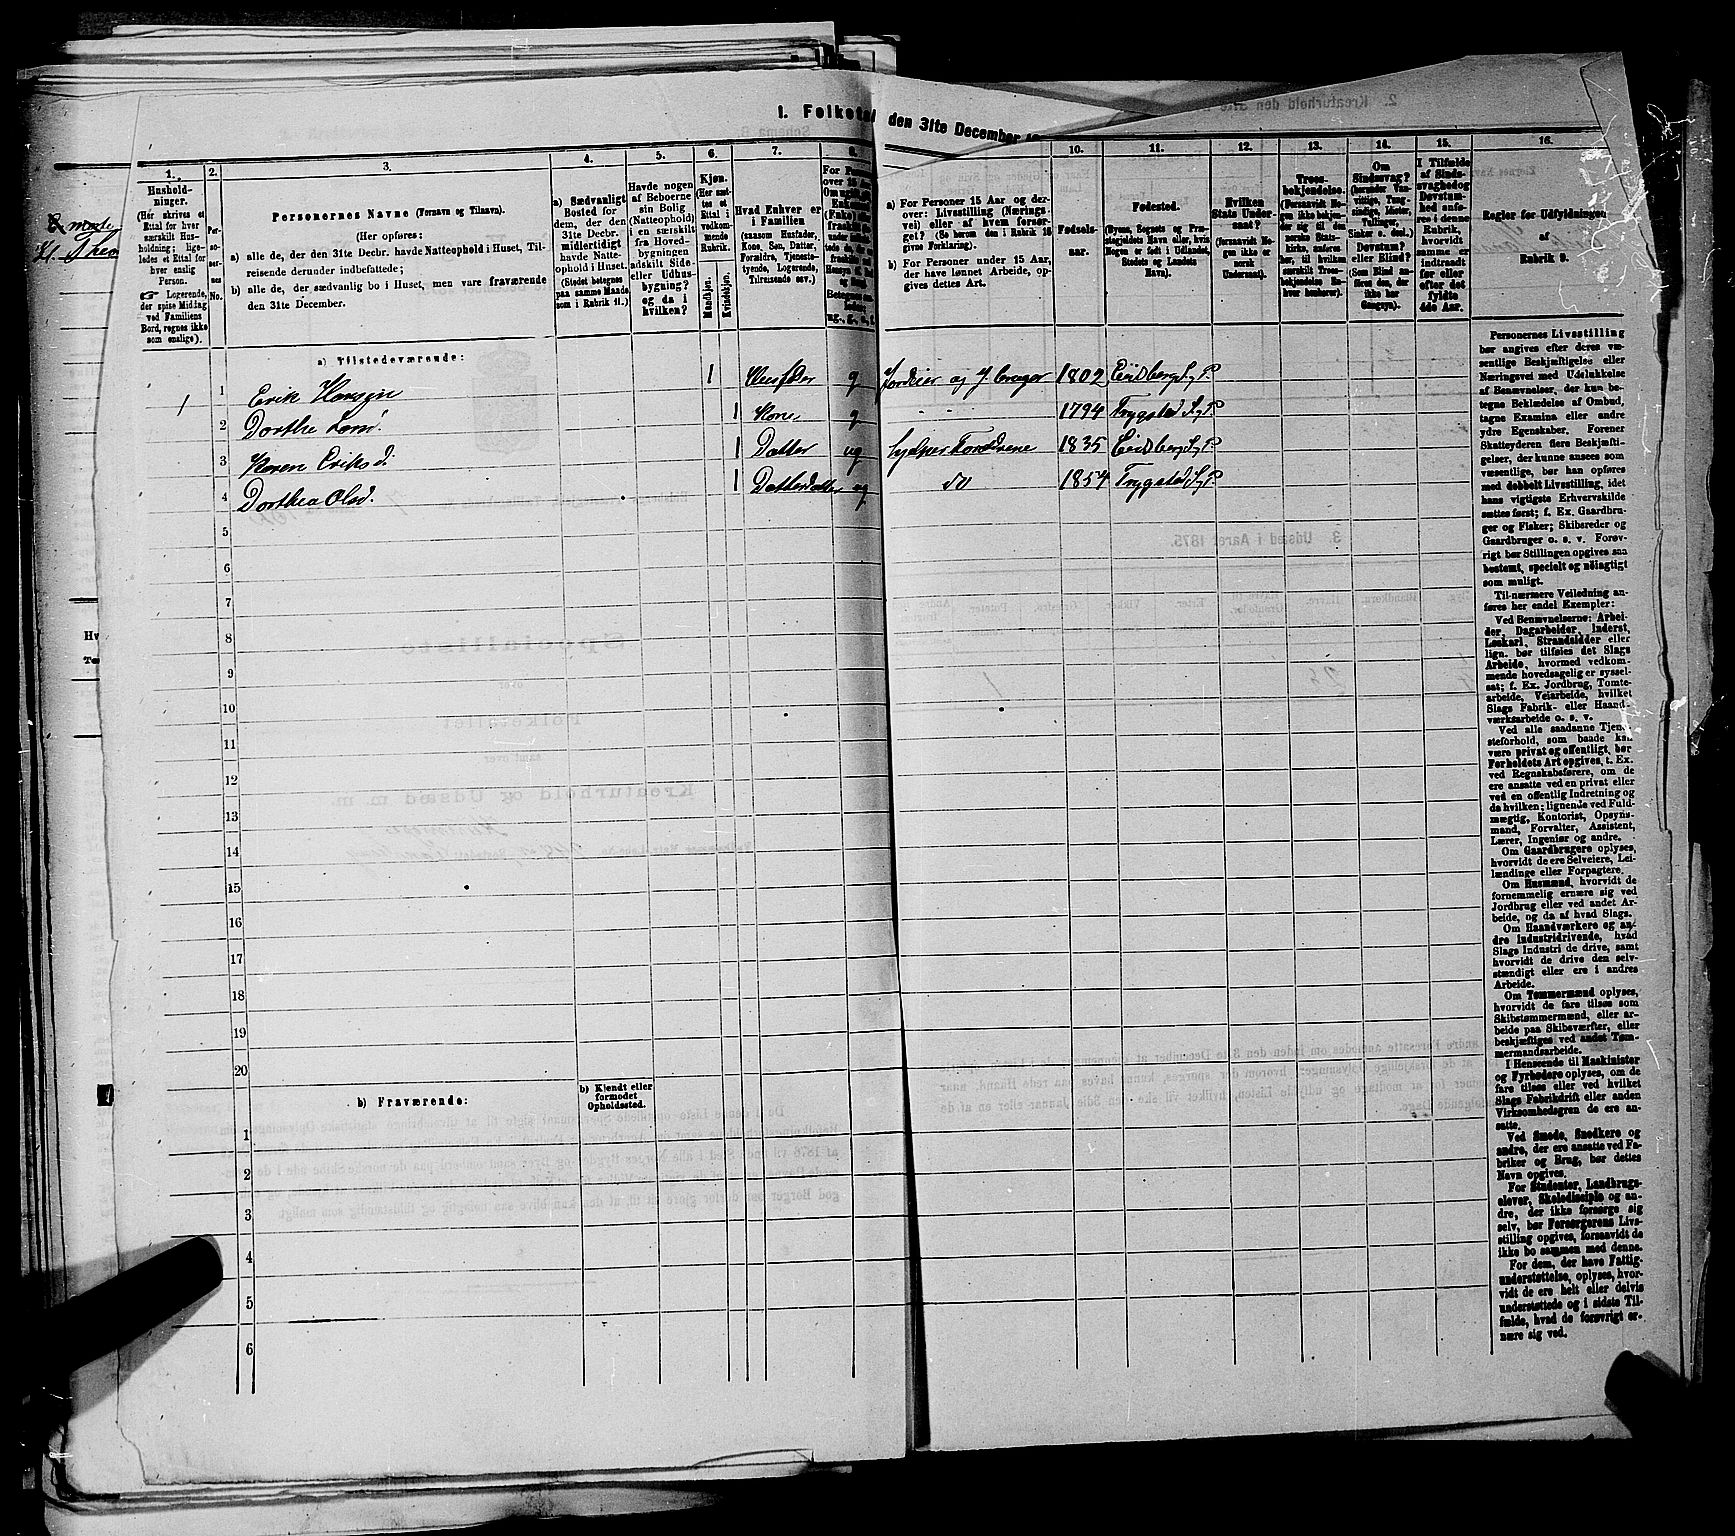 1. Folketal den 31te December
1. 2. 3. 4. 5. 6. 7. 8. 10. 11. 12. 13. 14. 15. 16.
Hushold-
ninger.
(Her skrives et
Ettal for hver
særskilt Hus-
holdning; lige-
ledes et Ettal for
hver enslig
Person.
☞ Logerende,
der spise Middag
ved Familiens
Bord, regnes ikke
som enslige).
Per-
so-
ner-
nes
No.
Personernes Navne (Fornavn og Tilnavn).
(Her opføres:
a) alle de, der den 31te Decbr. havde Natteophold i Huset, Til-
reisende derunder indbefattede;
b) alle de, der sædvanlig bo i Huset, men vare fraværende
den 31te December.
a) Sædvanligt
Bosted for
dem, der den
31te Decbr.
midlertidigt
havde Natte-
ophold i Huset.
(Stedet betegnes
paa samme Maade
som i Rubrik 11.)
Havde nogen
af Beboerne
sin Bolig
(Natteophold)
i en særskilt
fra Hoved-
bygningen
adskilt Side-
eller Udhus-
bygning?
og da i
hvilken?
Kjøn.
(Her sæt-
tes et
Ettal i
vedkom-
mende
Rubrik.
Mandkjøn.
Kvindekjøn.
Hvad Enhver er
i Familien
(saasom Husfader,
Kone, Søn, Datter,
Forældre, Tjeneste-
tyende, Logerende,
Tilreisende osv.)
a) For Personer 15 Aar og der-
over: Livsstilling (Nærings-
vei) eller af hvem forsør-
get? (Se herom den i Rubrik 16
givne Forklaring).
b) For Personer under 15 Aar,
der have lønnet Arbeide, op-
gives dettes Art.
Fødsels-
aar.
Fødested.
(Byens, Sognets og Præ-
stegjeldets Navn eller, hvis
Nogen er født i Udlandet,
Stedets og Landets
Navn).
Hvilken
Stats Under-
saat?
(forsaavidt No-
gen ikke er
norsk
Undersaat).
Troes-
bekjendelse.
(Forsaavidt No-
gen ikke bekjen-
der sig til den
norske Stats-
kirke, anføres
her, til hvilken
særskilt Troes-
bekjendelse En-
hver henhører).
Om
Sindssvag?
(herunder Van-
vittige, Tung-
sindige, Idioter,
Tullinger,
Sinker o. desl.)
Døvstum?
eller Blind?
(Som Blind an-
føres den, der
ikke har
Gangsyn).
I Tilfælde
af Sinds-
svaghed og
Døvstum-
hed anfø-
res i denne
Rubrik,
hvorvidt
samme er
indtraadt
før eller
efter det
fyldte
4de Aar.
Regler for Udfyldningen
af
Rubrik 9.
a) Tilstedeværende:
1 1 Erik Hansen 1 Husfader g Jordeier og J. bruger 1802 Eidsberg S. P.
2 Dorthe Larsd. 1 Kone g 1794 Trygstad S. P.
3 Karen Eriksd. 1 Datter ug hjelper Forældrene 1835 Eidsberg S. P.
4 Dorthea Olsd. 1 Datterdatter ug do 1854 Trygstad S. P.
5
6
7
8
9
10
11
12
13
14
15
16
17
18
19
20
b) Fraværende:
b) Kjendt eller
formodet
Opholdssted.
1
2
3
4
5
6
Personernes Livsstilling
bør angives efter deres væ-
sentlige Beskjæftigelse eller
Næringsvei med Udelukkelse
af Benævnelser, der kun be-
tegne Beklædelse af Ombud,
tagne Examina eller andre
ydre Egenskaber. Forener
Skatteyderen flere Beskjæfti-
gelser, der kunne ansees som
væsentlige, bør han opføres
med dobbelt Livsstilling, idet
hans vigtigste Erhvervskilde
sættes først; f. Ex. Gaardbru-
ger og Fisker; Skibsreder og
Gaardbruger o. s. v. Forøv-
rigt bør Stillingen opgives saa
bestemt, specielt og nøiagtigt
som muligt.
Til nærmere Veiledning an-
føres her endel Exempler:
Ved Benævnelserne: Arbei-
der, Dagarbeider, Inderst,
Løskarl, Strandsidder eller
lign. bør tilføies det Slags
Arbeide, hvormed vedkom-
mende hovedsagelig er syssel-
sat; f. Ex. Jordbrug, Tomte-
arbeide, Veiarbeide, hvilket
Slags Fabrik- eller Haand-
værksarbeide o. s. v.
Ved alle saadanne Tjene-
steforhold, som baade kan
være privat og offentligt, bør
Forholdets Art opgives, t. Ex.
ved Regnskabsførere, om de
ere ansatte ved en privat eller
ved en offentlig Indretning og
da hvilken; lignende ved Fuld-
mægtig, Kontorist, Opsyns-
mand, Forvalter, Assistent,
Lærer, Ingeniør og andre.
Om Gaardbrugere oplyses,
hvorvidt de ere Selveiere, Lei-
lændinge eller Forpagtere.
Om Husmænd, hvorvidt de
fornemmelig ernære sig ved
Jordbrug eller ved andet Ar-
beide, og da af hvad Slags.
Om Haandværkere og an-
dre Industridrivende, hvad
Slags Industri de drive, samt
hvorvidt de drive den selv-
stændigt eller ere i andres
Arbeide.
Om Tømmermænd oplyses,
hvorvidt de fare tilsøs som
Skibstømmermænd, eller ar-
beide paa Skibsværfter, eller
beskjæftiges ved andet Tøm-
mermandsarbeide.
I Henseende til Maskinister
og Fyrbødere oplyses, om de
fare tilsøs eller ved hvilket
Slags Fabrikdrift eller anden
Virksomhedsgren de ere an-
satte.
Ved Smede, Snedkere og
andre, der ere ansatte ved Fa-
briker og Brug, bør dettes
Navn opgives.
For Studenter, Landbrugs-
elever, Skoledisciple og an-
dre, der ikke forsørge sig
selv, bør Forsørgerens Livs-
stilling opgives, forsaavidt de
ikke bo sammen med denne.
For dem, der have Fattig-
understøttelse, oplyses, hvor-
vidt de ere helt eller delvis
understøttede og i sidste Til-
fælde, hvad de forøvrigt er-
nære sig ved.